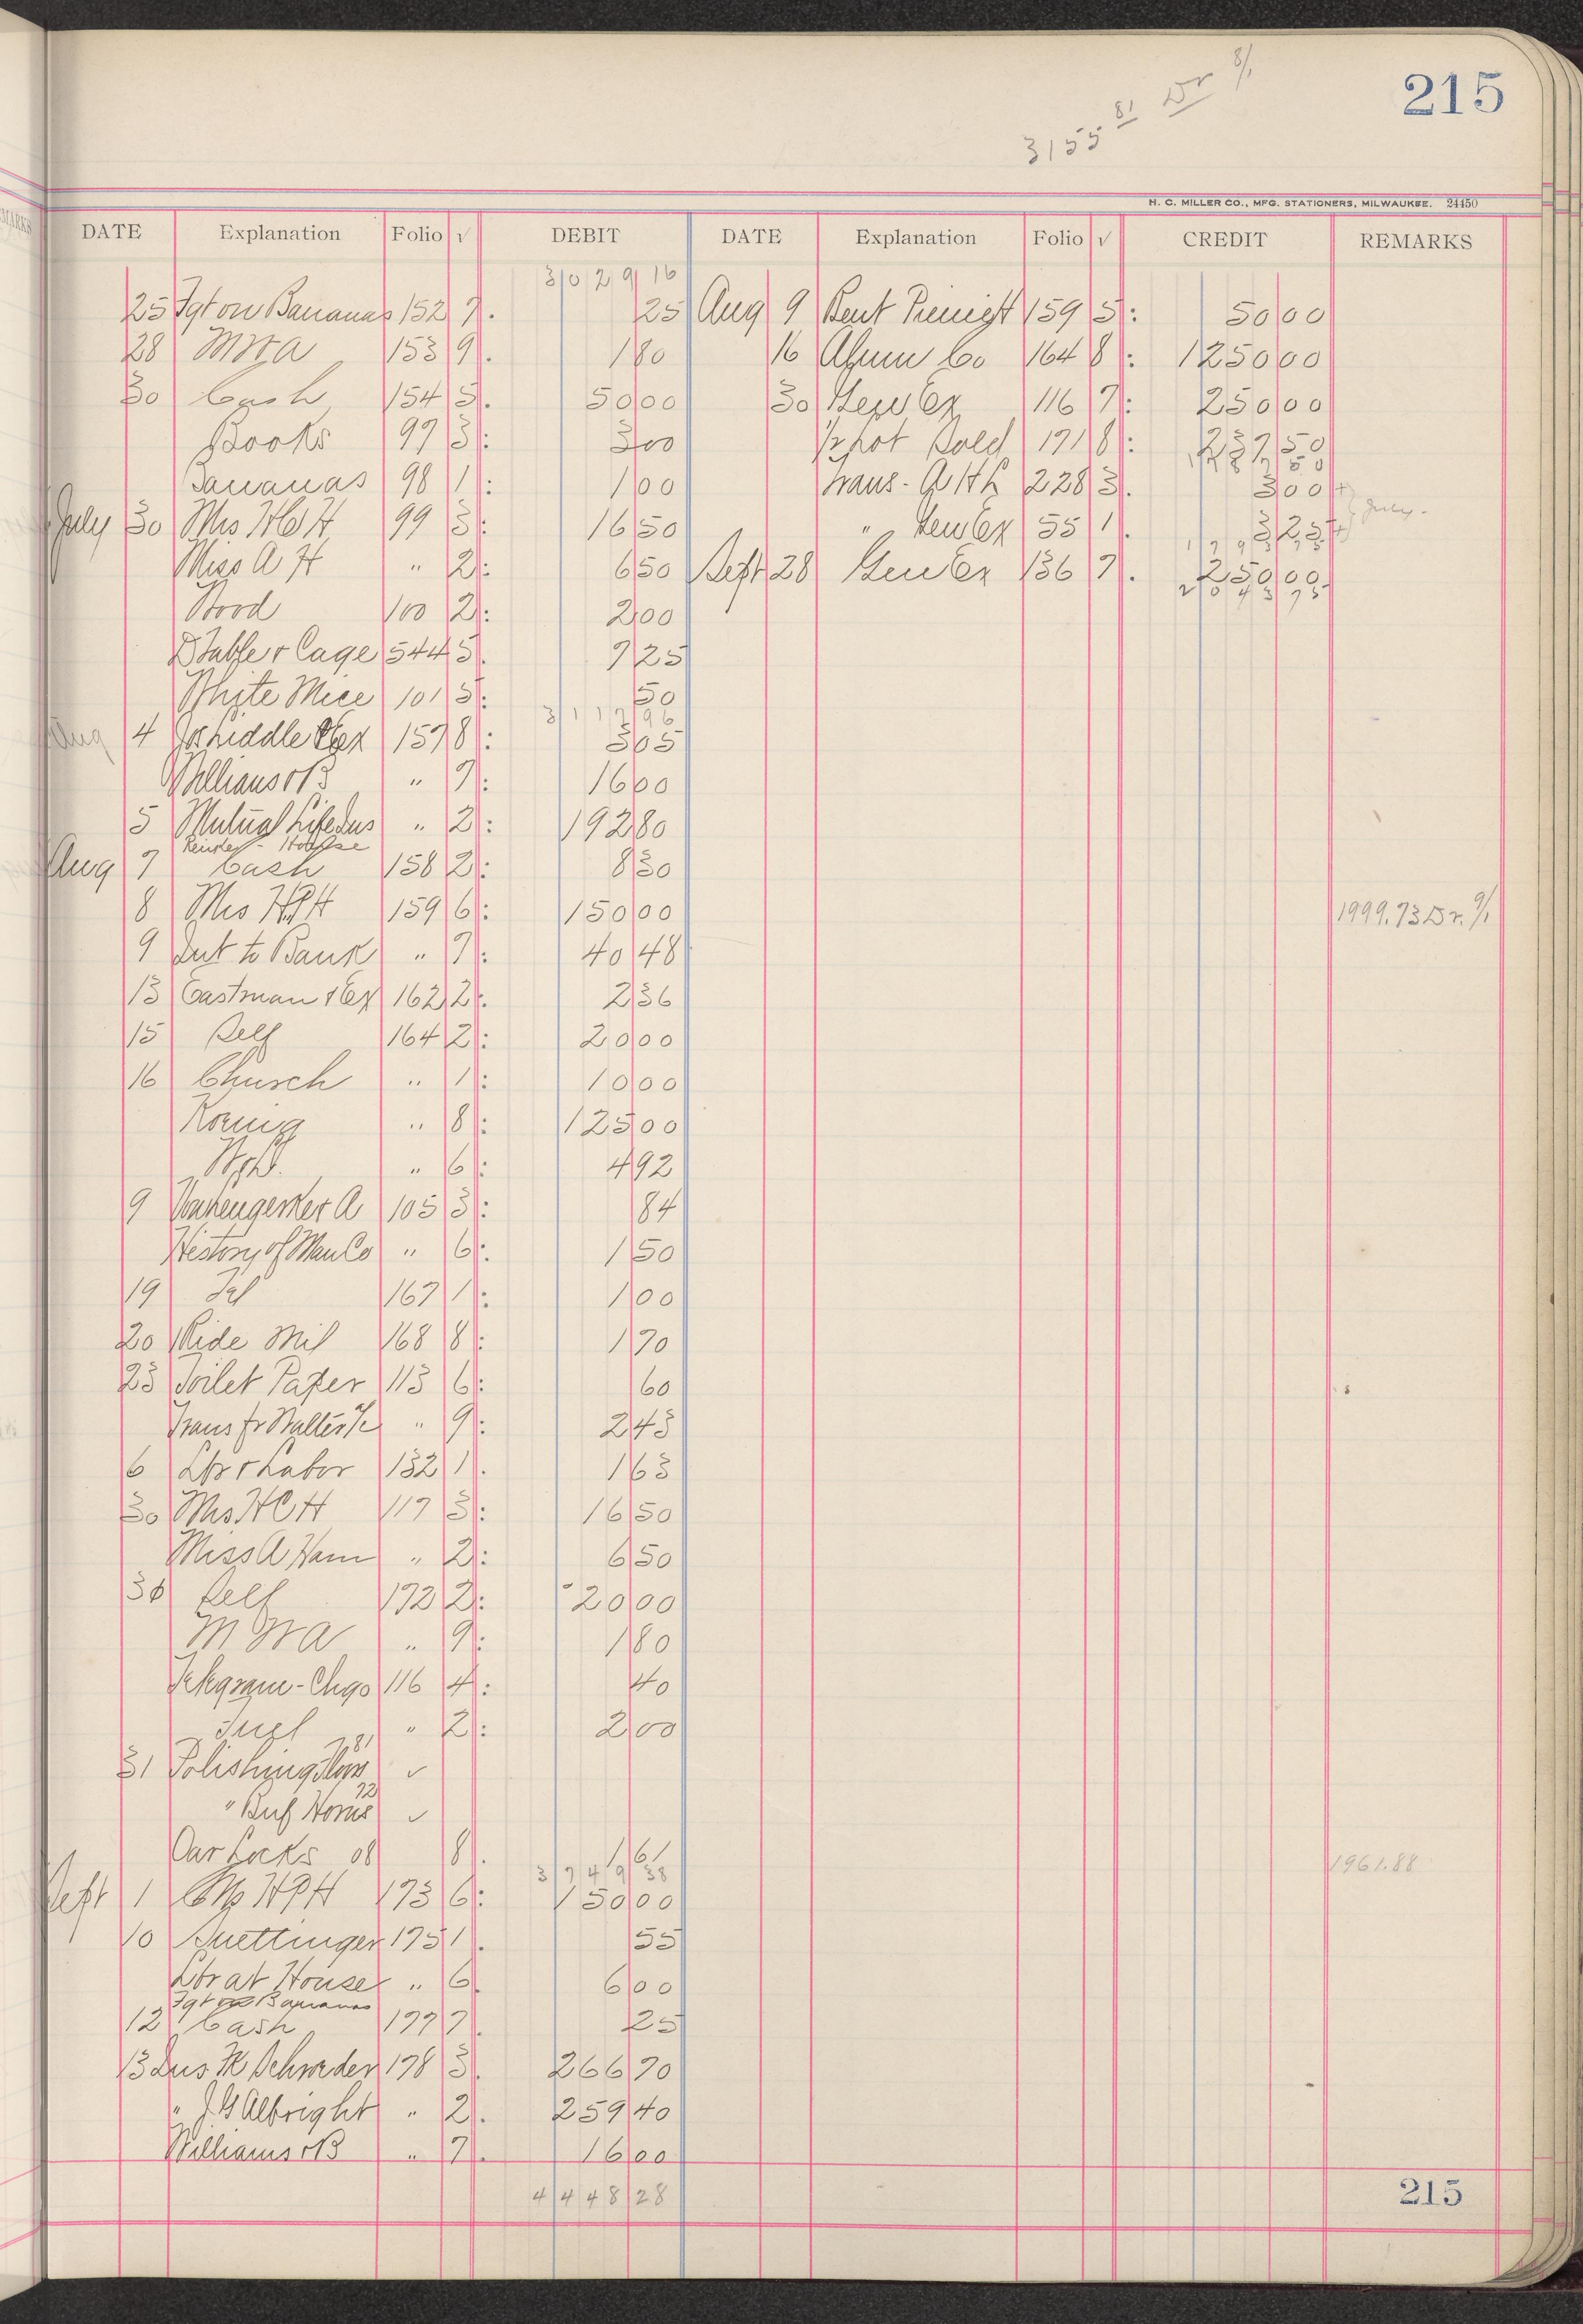 215
3155 81 Dr 8/1
H. C. MILLER CO., MFG. STATIONERS, MILWAUKEE. 24450
DATE Explanation Folio √ DEBIT DATE Explanation Folio √ CREDIT REMARKS
3029 16
25 Fgt on Bananas 152 7 25 Aug 9 159 5 50 00
28 153 9 1 80 16 Co 164 8 1250 00
30 Cash 154 5 50 00 30 Ex 116 7 250 00
Books 97 3 3 00 Sold 171 8
Bananas 98 1 1 00 Trans - 228 3 3 00
July 30 Mrs 99 3 16 50 " Ex 55 1 July
Miss A H " 2 6 50 Sept 28 Ex 136 7 250 00
Wood 100 2 2 00
Table & Cage 54 45 7 25
White Mice 101 5 50
3117 96
Aug 4 157 8 3 05
Williams & B " 7 16 00
5 Mutual Life Ins " 2 192 80
Aug 7 Cash 158 2 8 30
8 Mrs HPH 159 6 150 00 1999.73 Dr. 9/1
9 Int to Bank " 7 40 48
13 Eastman & Ex 162 2 2 36
15 Self 164 2 20 00
16 Church " 1 10 00
Koenig " 8 125 00
" 6 4 92
9 A 105 3 84
History of Man Co " 6 1 50
19 Tel 167 1 1 00
20 Ride Mil 168 8 1 70
23 Toilet Paper 113 6 60
Trans fr Walters " 9 2 43
6 & Labor 132 1 1 63
30 Mrs HCH 117 3 16 50
Miss A Ham " 2 6 50
30 Self 172 2 20 00
" 9 1 80
Telegram - Chgo 116 4 40
Fuel " 2 2 00
31 Polishing 81 ✓
" Buf Horns 72 ✓
Oar Locks 08 8 1 61
3749 38 1961.88
Sept 1 HPH 173 6 150 00
10 Guettinger 175 1 55
at House " 6 6 00
Fgt on Bananas
12 Cash 177 7 25
13 Ins H Schroeder 178 3 266 70
" J G Albright " 2 259 40
Williams & B " 7 16 00
4448 28
215